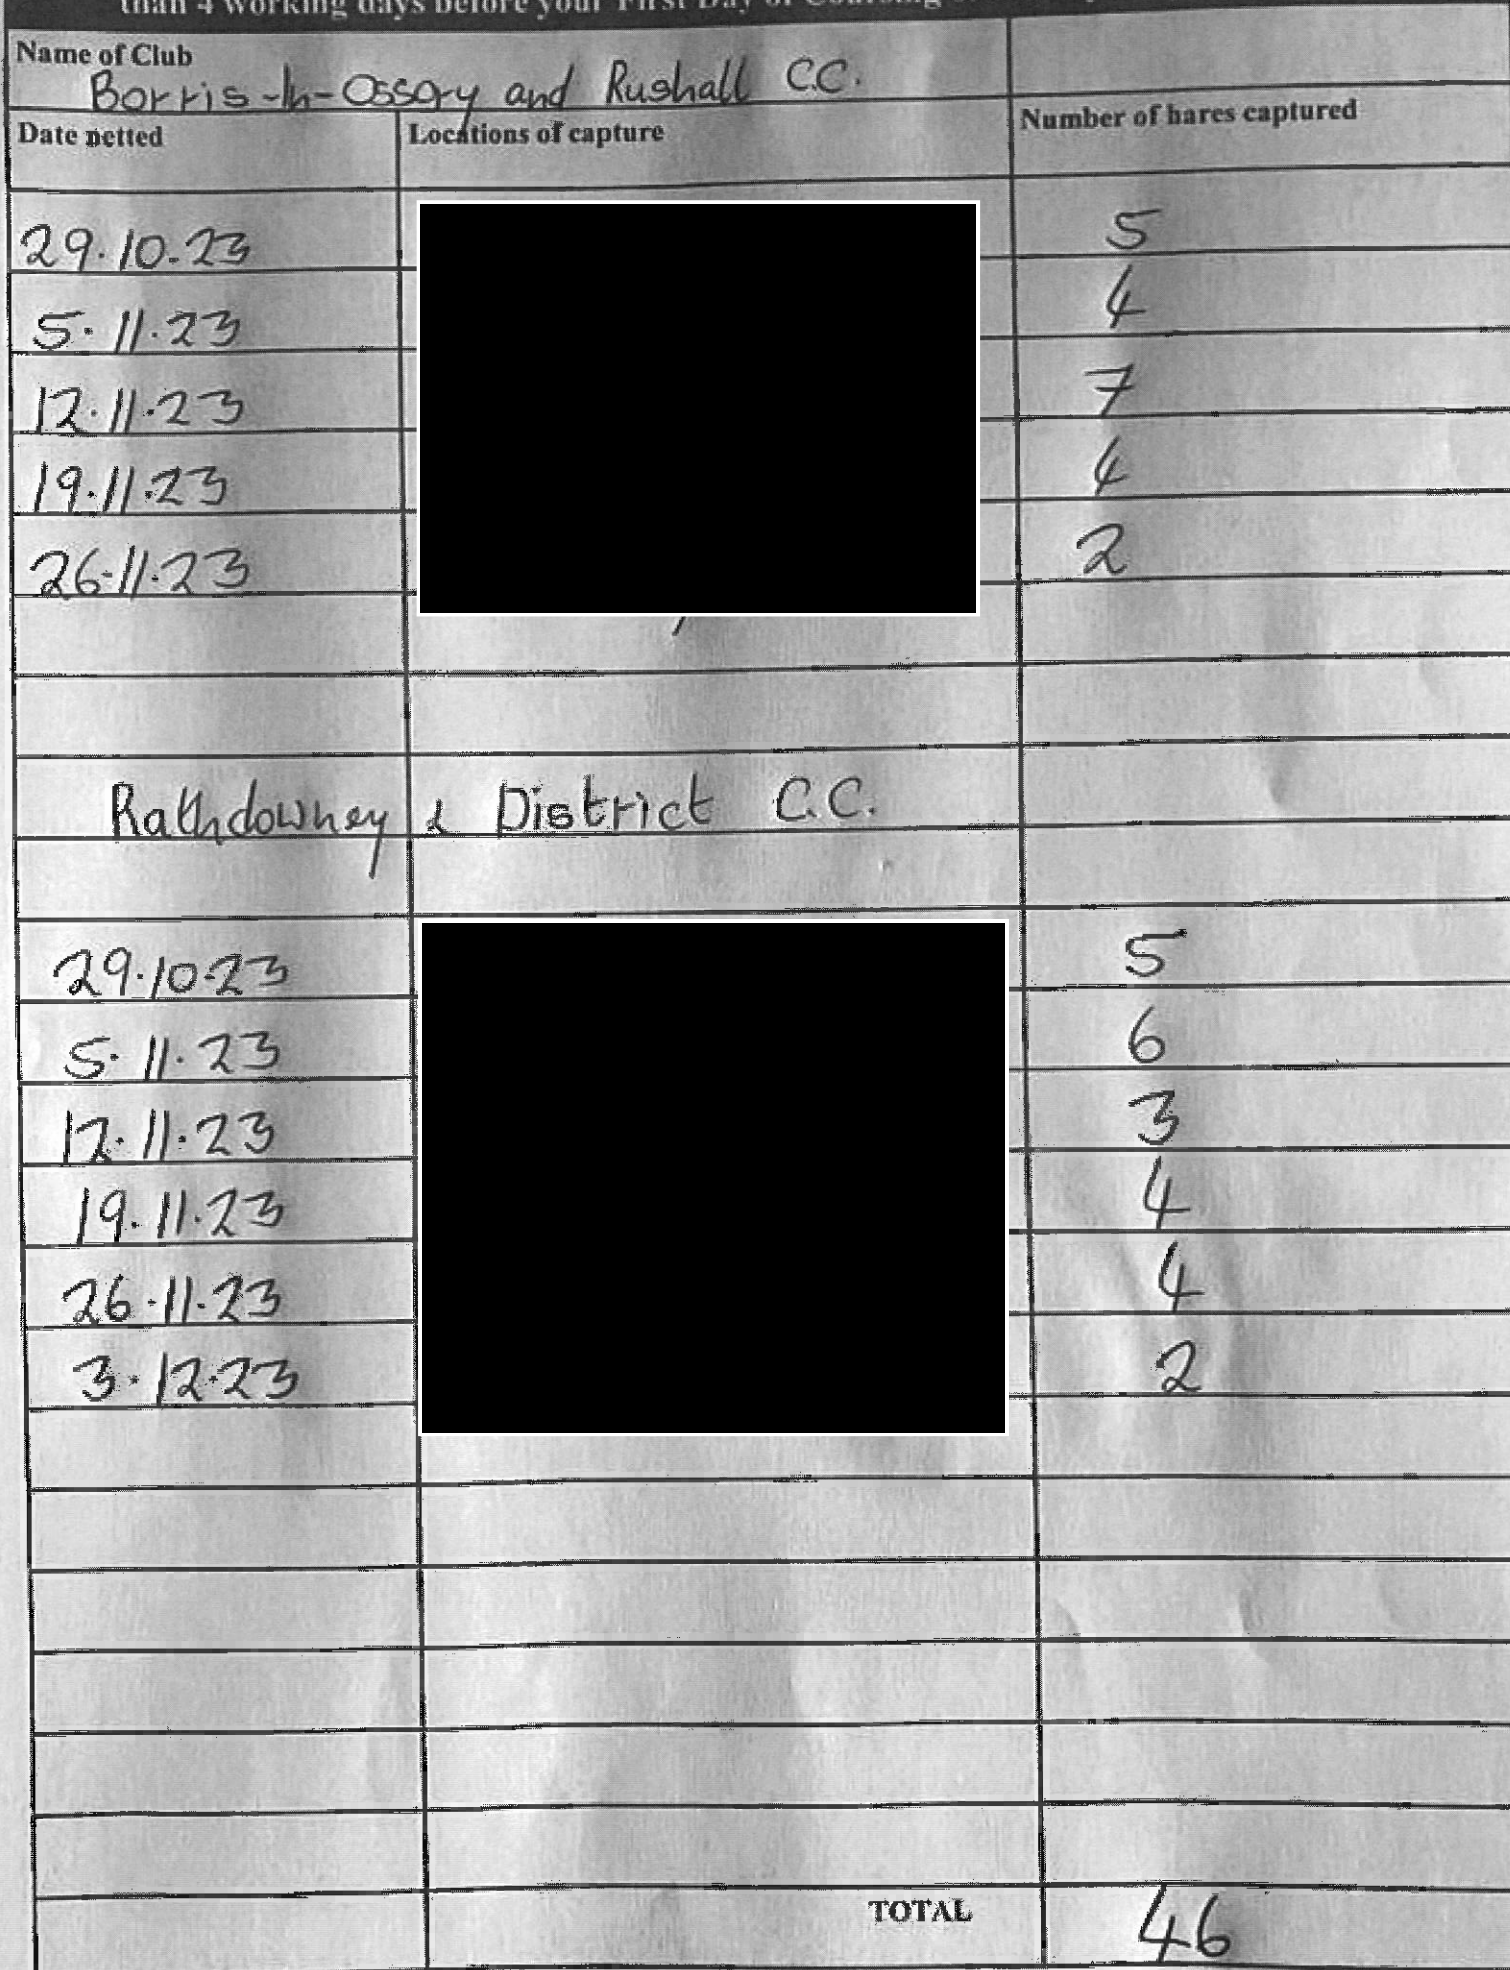 than 4 working days before your First Day of Coursing
Name of Club
Borris-In-Ossory and Rushall C.C.
Date netted Locations of capture Number of hares captured
29.10.23 5
5.11.23 4
12.11.23 7
19.11.23 4
26.11.23 2
Rathdowney & District C.C.
29.10.23 5
5.11.23 6
12.11.23 3
19.11.23 4
26.11.23 4
3.12.23 2
TOTAL 46